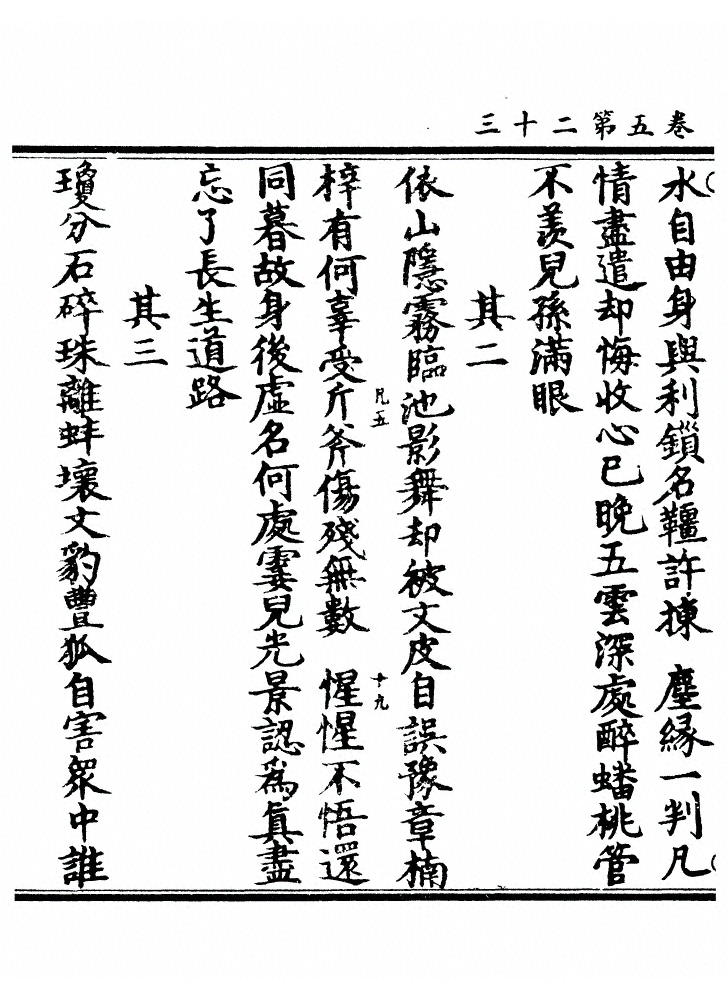 卷五第二十三
水自由身與利鎖名韁許揀　塵緣一判凡
情盡遣却悔收心已晚五雲深處醉蟠桃管
不羨兒孫滿眼
其二
依山隱霧臨池影舞却被文皮自誤豫章楠
梓有何辜受斤斧傷殘無數　惺惺不悟還
凡五
十九
同暮故身後虛名何處霎兒光景認為真盡
忘了長生道路
其三
瓊分石碎珠離蚌壞文豹豐狐自害衆中誰